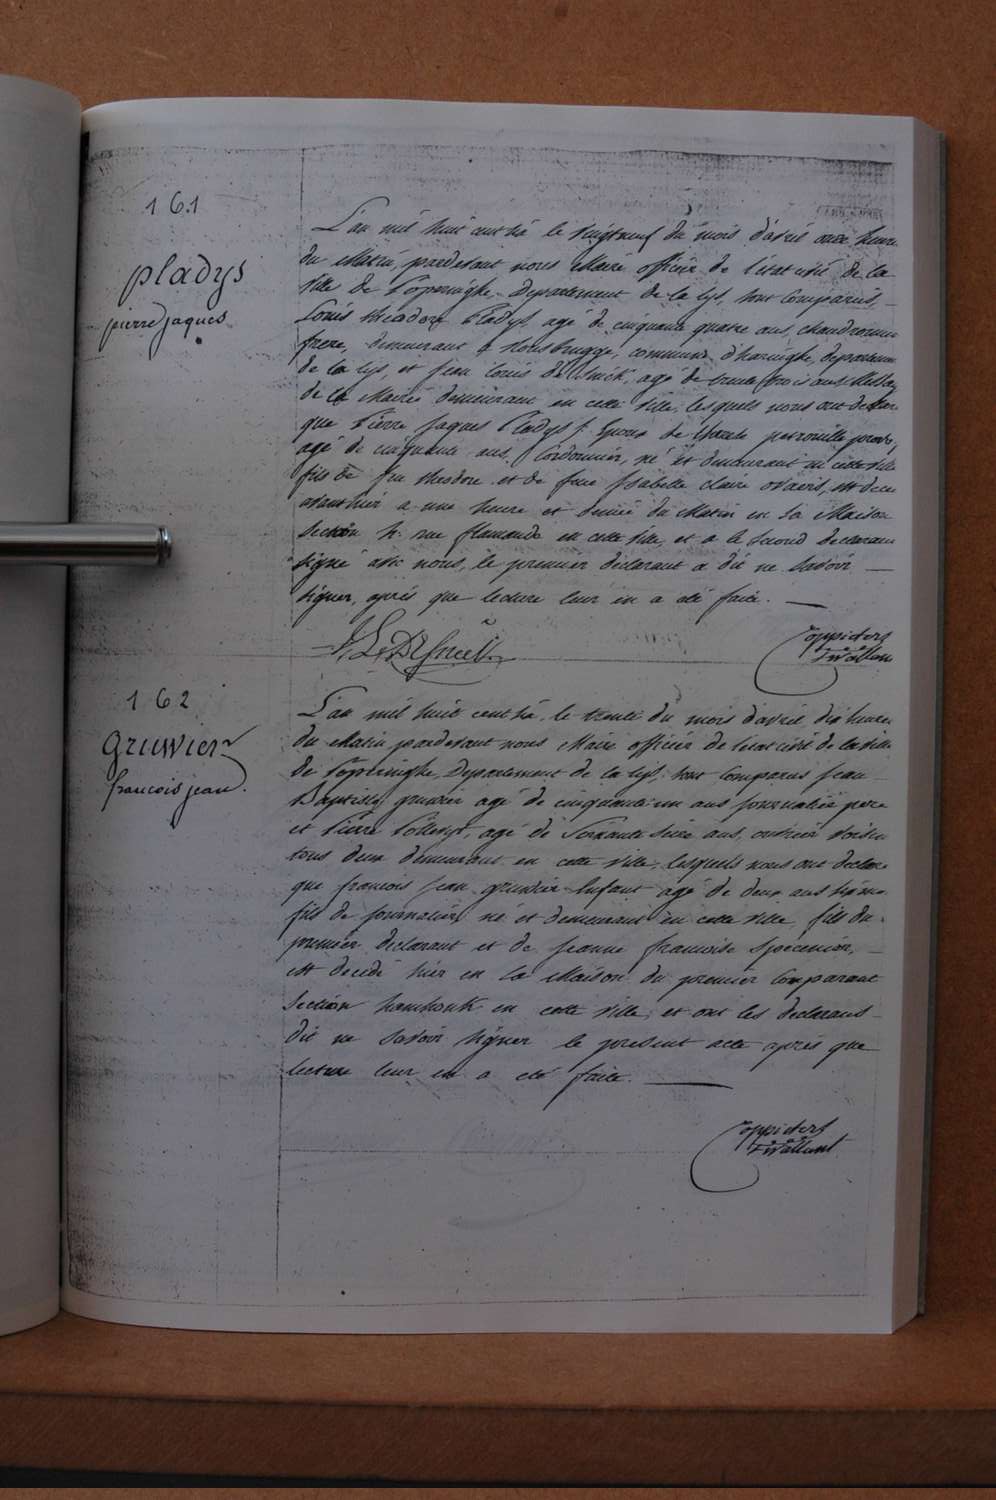 161
pladys
pierre jaques
L'an mil huit cent dix le vingtneuf du mois d'avril onze heures
du Matin, pardevant nous Maire officier de l'état civil de la
ville de Poperinghe Departement de la Lys, sont Comparus,
Louis theodore Pladys, agé de cinquante quatre ans, chaudronnier
frere, demeurant à Rousbrugge, commune d'haringhe, departem
de la Lys, et jean Louis De Smidt, agé de trente trois ans
de la Mairie demeurant en cette ville, lesquels nous ont declar
que Pierre jaques Pladys Epoux de
agé de cinquante ans, Cordonnier, né et demeurant en cette ville
fils de feu theodore et de feue Isabelle claire est dece
avant hier a une heure et demie du Matin en sa Maison
section h. rue flamande en cette ville, et a le second declarant
signé avec nous, le premier declarant a dit ne savoir
signer, après que lecture leur en a été faite.
162
gruwier
francois jean
L'an mil huit cent dix, le trente du mois d'avril dix heures
du Matin pardevant nous Maire officier de l'etat civil de la ville
de Poperinghe, Departement de la Lys, sont Comparus jean
Baptiste gruwier agé de cinquante un ans journalier pere
et Pierre agé de Soixante seize ans, ouvrier voisin
tous deux demeurant en cette ville, lesquels nous ont declar
que francois jean gruwier Enfant agé de deux ans
fils de journalier, né et demeurant en cette ville, fils du
premier declarant et de jeanne francoise
est decédé hier en la Maison du premier Comparant
Section en cette ville, et ont les declarans
dit ne savoir signer le present acte après que
lecture leur en a été faite.